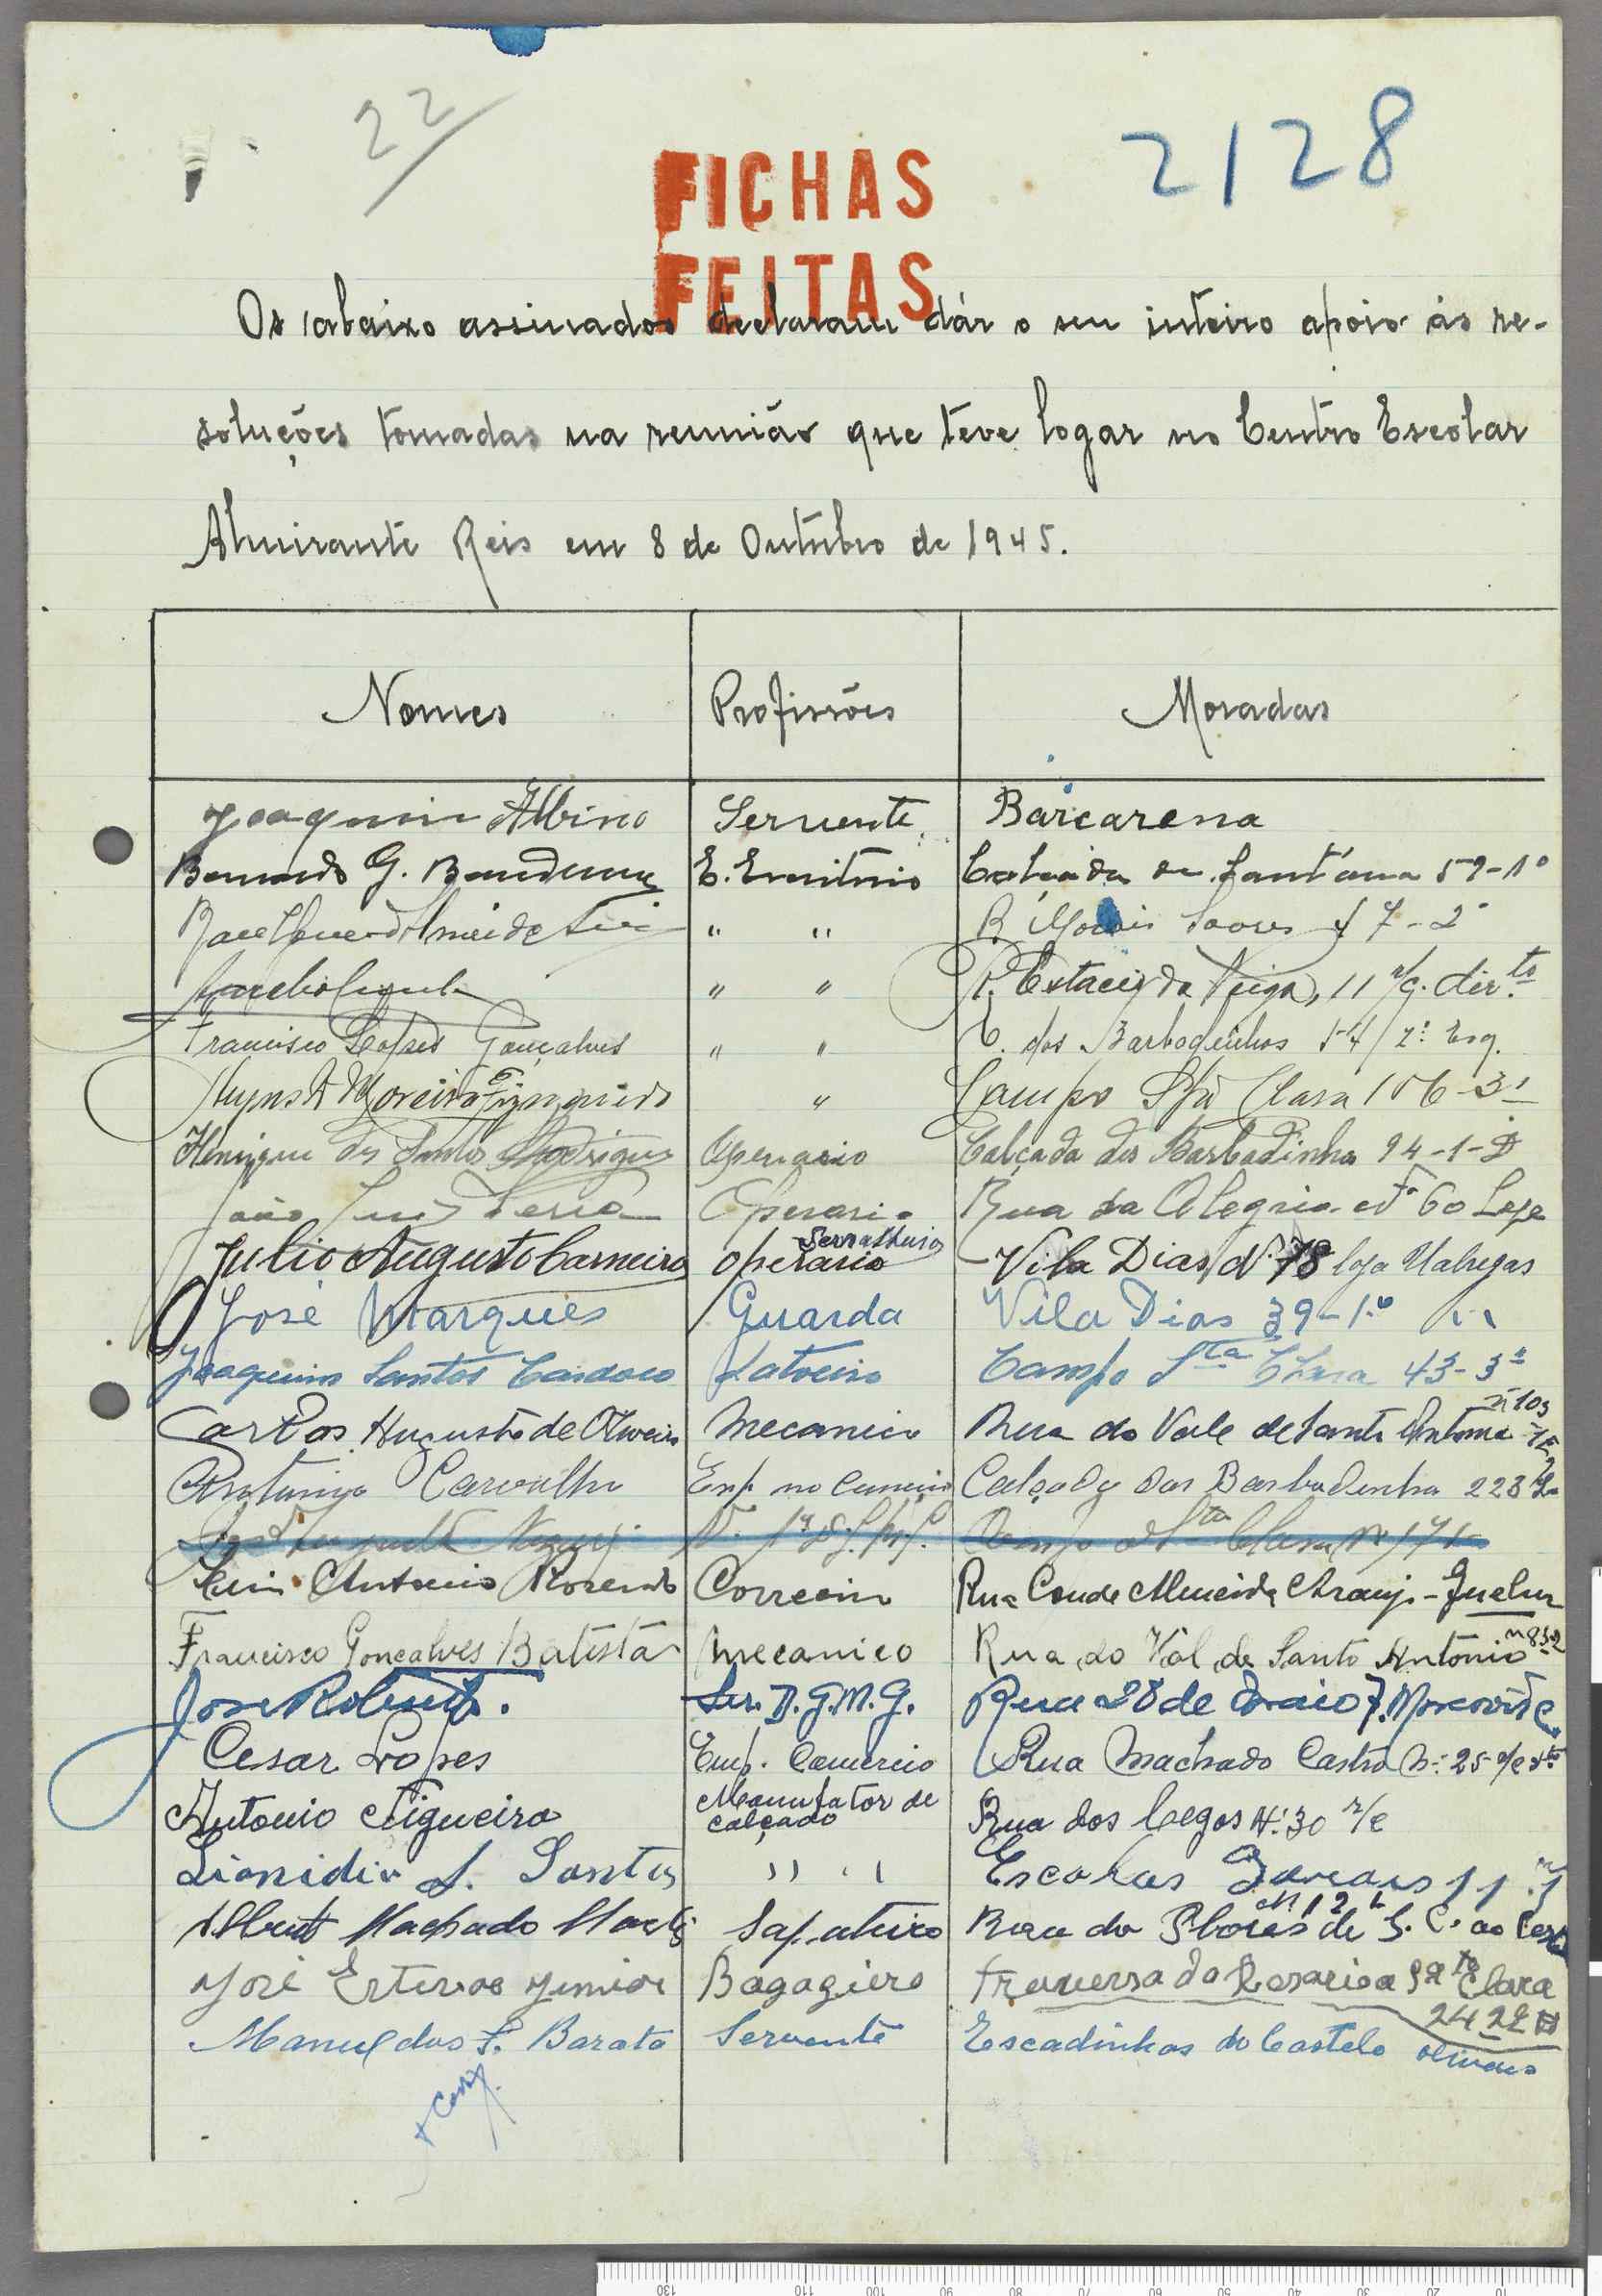 22
2128
FICHAS
FEITAS
Os abaixo assinados declaram dár o seu inteiro apoio ás re-
soluções tomadas na reunião que teve logar no Centro Escolar
Almirante Reis em 8 de Outubro de 1945.
Nomes Profissões Moradas
Joaquim Albino Servente Barcarena
Bernardo G. E. Escritorio Calçada de Sant'ana 59-1º
" " R. Morais Soares 47-2º
" " R. Estacio da Veiga, 11 r/c. dir.to
Francisco Lopes Gonçalves " " C. dos Barbadinhos 54/2º Esq.
Moreira Figueiredo " Campo Stª Clara 156-3º
Henrique dos Santos Rodrigues Operario Calçada dos Barbadinhos 94-1-D
João Luis Operario Rua da Alegria nº 60 Loja
Julio Augusto Carneiro Operario Serralheiro Vila Dias Nº 78 loja Xabregas
José Marques Guarda Vila Dias 39-1.º " "
Joaquim Santos Cardoso Latoeiro Campo Sta Clara 43-3º
Carlos Augusto de Oliveira Mecanico Rua do Vale de Santo Antonio nº 103
Antonio Carvalho Emp. no Comercio Calçada dos Barbadinhos 223
Campo Sta Clara Nº
Luis Antonio Rosendo Correeiro Rua Conde Almeida Araujo - Queluz
Francisco Gonçalves Batista Mecanico Rua do Val de Santo Antonio nº 83-2
José Ser. D.G.M.G. Rua 28 de Maio 7. Moscavide
Cesar Lopes Emp. Comercio Rua Machado Castro Nº 25 r/c dto
Antonio Figueira Manufator de calçado Rua dos Cegos Nº 30 r/c
Lionidio S. Santos " " Escolas Gerais
Machado Sapateiro Rua da
José Esteves Junior Bagageiro Travessa do Rosario a Sta Clara
24 2º D
Manuel dos S. Barata Servente Escadinhas do Castelo Olivais